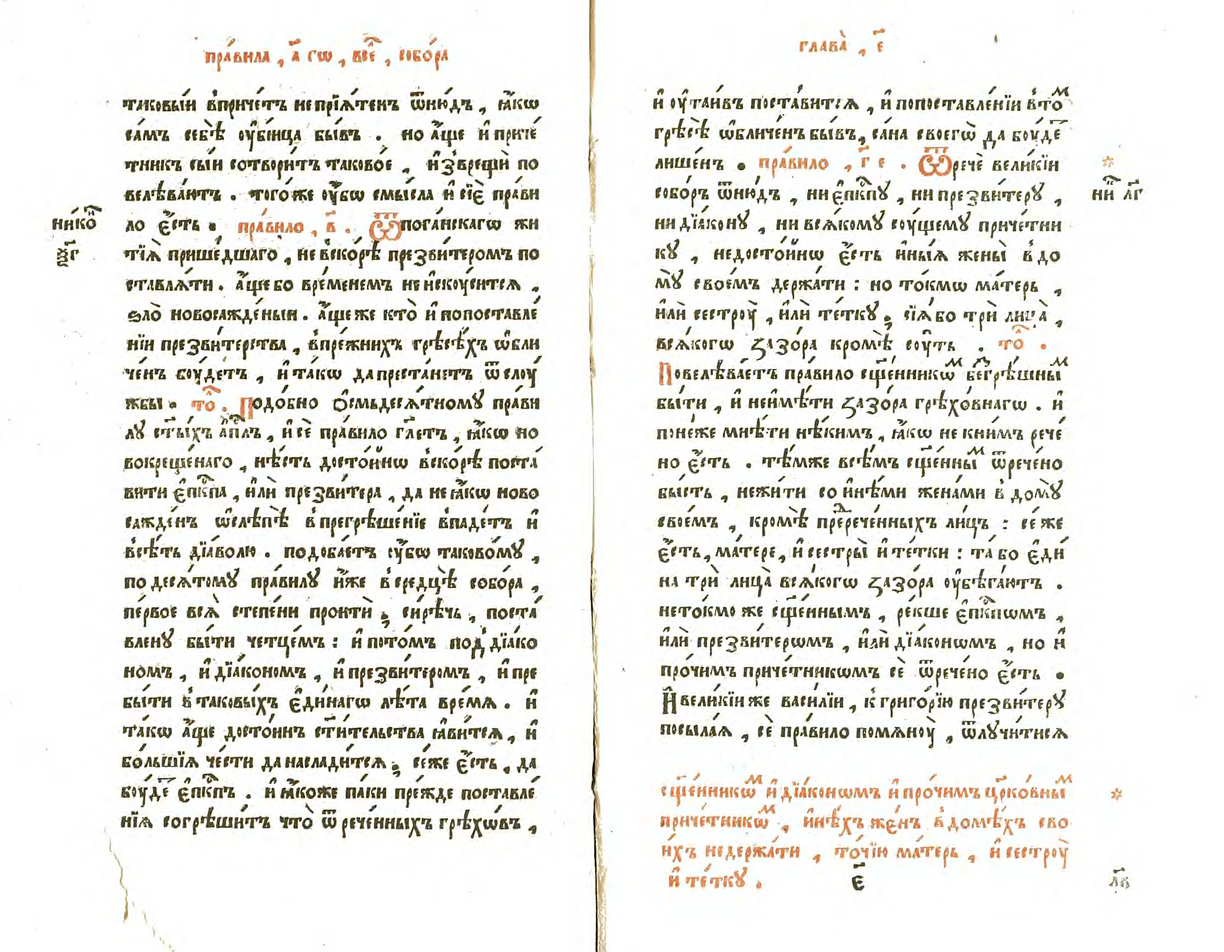 пра́вила , а҃ гѡ , все̑ , собо́ра
таковы́и впричетъ непрїѧ́тенъ ѿню́дъ , ꙗ҆́кѡ
са́мъ себѣ̀ ᲂу҆бі́ица бы́въ . но а҆́ще и҆ приче́
тникъ сы́и сотвори́тъ таково́е , и҆зврещѝ по
велѣва́ютъ . того́же ᲂу҆́бѡ смы́сла и҆ сїѐ прави
ло є҆́сть . пра́вило , в҃ . Ѿ пога́нскагѡ жи
тїѧ̀ прише́дшаго , не вско́рѣ презви́теромъ по
ставлѧ́ти . а҆́ще бо вре́менемъ не и҆скꙋ́ситсѧ ,
ѕло̀ новосажде́ныи . а҆́ще же кто̀ и҆ попоставле́
нїи презви́терства , впре́жнихъ грѣсѣ́хъ ѡ҆бли
че́нъ бꙋ́детъ , и҆ та́кѡ да преста́нетъ ѿ слꙋ́
жбы . то̑ . Подо́бно ѻ҆смьдесѧ́тному пра́ви
лу ст҃ы́хъ а҆пⷭ҇лъ , и҆ сѐ пра́вило гл҃етъ , ꙗ҆́кѡ но
вокреще́наго , нѣ́сть досто́йнѡ вско́рѣ поста́
вити є҆пⷭ҇кпа , и҆лѝ презви́тера , да не ꙗ҆́кѡ ново
сажде́нъ ѡ҆слѣ́пѣ впрегрѣше́нїе впаде́тъ и҆
всѣ́ть дїа́волю . подоба́етъ ᲂу҆́бѡ таково́мꙋ ,
по десѧ́томꙋ пра́вилꙋ и҆́же в средцѣ̀ собо́ра ,
пе́рвое всѧ̀ степе́ни проитѝ ; сирѣ́чь , поста́
вленꙋ бы́ти четце́мъ : и҆ пото́мъ под дїа́ко
номъ , и҆ дїа́кономъ , и҆ презви́теромъ , и҆ пре
бы́ти в таковы́хъ є҆ди́нагѡ лѣ́та вре́мѧ . и҆
та́кѡ а҆́ще досто́инъ ст҃и́тельства ꙗ҆ви́тсѧ , и҆
бо́льшїѧ че́сти да наслади́тсѧ ; се́же є҆́сть , да
бꙋ́де є҆пⷭ҇кпъ . и҆ ꙗ҆́коже па́ки пре́жде поставле́
нїѧ согрѣши́тъ что̀ ѿ рече́нныхъ грѣхѡ́въ ,
ни́ко
ѯ҃г
глава̀ , е҃
и҆ ᲂу҆таи́въ поста́витсѧ , и҆ попоставле́нїи вто́ⷨ
грѣсѣ̀ ѡ҆бличе́нъ бы́въ , са́на своегѡ̀ да бꙋ́де
лише́нъ . пра́вило , г҃ е . Ѿречѐ вели́кїи
собо́ръ ѿню́дъ , ни є҆пⷭ҇кпꙋ , ни презви́терꙋ ,
ни дїа́конꙋ , ни всѧ́комꙋ сꙋ́щему приче́тни
кꙋ , недосто́йнѡ є҆́сть и҆ны́ѧ жены̀ в до
мꙋ̀ свое́мъ держа́ти : но то́кмѡ ма́терь ,
и҆лѝ сестрꙋ̀ , и҆лѝ те́ткꙋ ; сїѧ̀ бо трѝ лица̀ ,
всѧ́когѡ ꙁазо́ра кромѣ̀ сꙋ́ть . то̑ .
Повелѣва́етъ пра́вило сщ҃е́нникѡⷨ безгрѣ́шныⷨ
бы́ти , и҆ неимѣ́ти ꙁазо́ра грѣхо́внагѡ . и҆
поне́же мнѣ́ти нѣ́кимъ , ꙗ҆́кѡ не кни́мъ рече
но є҆́сть . тѣ́мже всѣ́мъ сщ҃е́нныⷨ ѿрече́но
бы́сть , нежи́ти со и҆нѣ́ми жена́ми в домꙋ̀
свое́мъ , кромѣ̀ пререче́нныхъ ли́цъ : се́ же
є҆́сть , ма́тере , и҆ сестры̀ и҆ те́тки : та́ бо є҆ди
на трѝ лица̀ всѧ́когѡ ꙁазо́ра ᲂу҆бѣга́ютъ .
нето́кмо же сщ҃е́ннымъ , ре́кше є҆пⷭ҇кпѡмъ ,
и҆лѝ презви́терѡмъ , и҆лѝ дїа́конѡмъ , но и҆
про́чимъ приче́тникѡмъ сѐ ѿрече́но є҆́сть .
И҆ вели́кїи же васи́лїи , к григо́рїю презви́терꙋ
посыла́ѧ , сѐ пра́вило помѧнꙋ̀ , ѿлꙋчи́тисѧ
*
ни҃ лг҃
сщ҃е́нникѡⷨ и҆ дїа́конѡмъ и҆ про́чимъ цр҃ко́вныⷨ
приче́тникѡⷨ , и҆нѣ́хъ же́нъ в домѣ́хъ сво
и́хъ недержа́ти , то́чїю ма́терь , и҆ сестрꙋ̀
и҆ те́ткꙋ .
*
е҃
лв҃